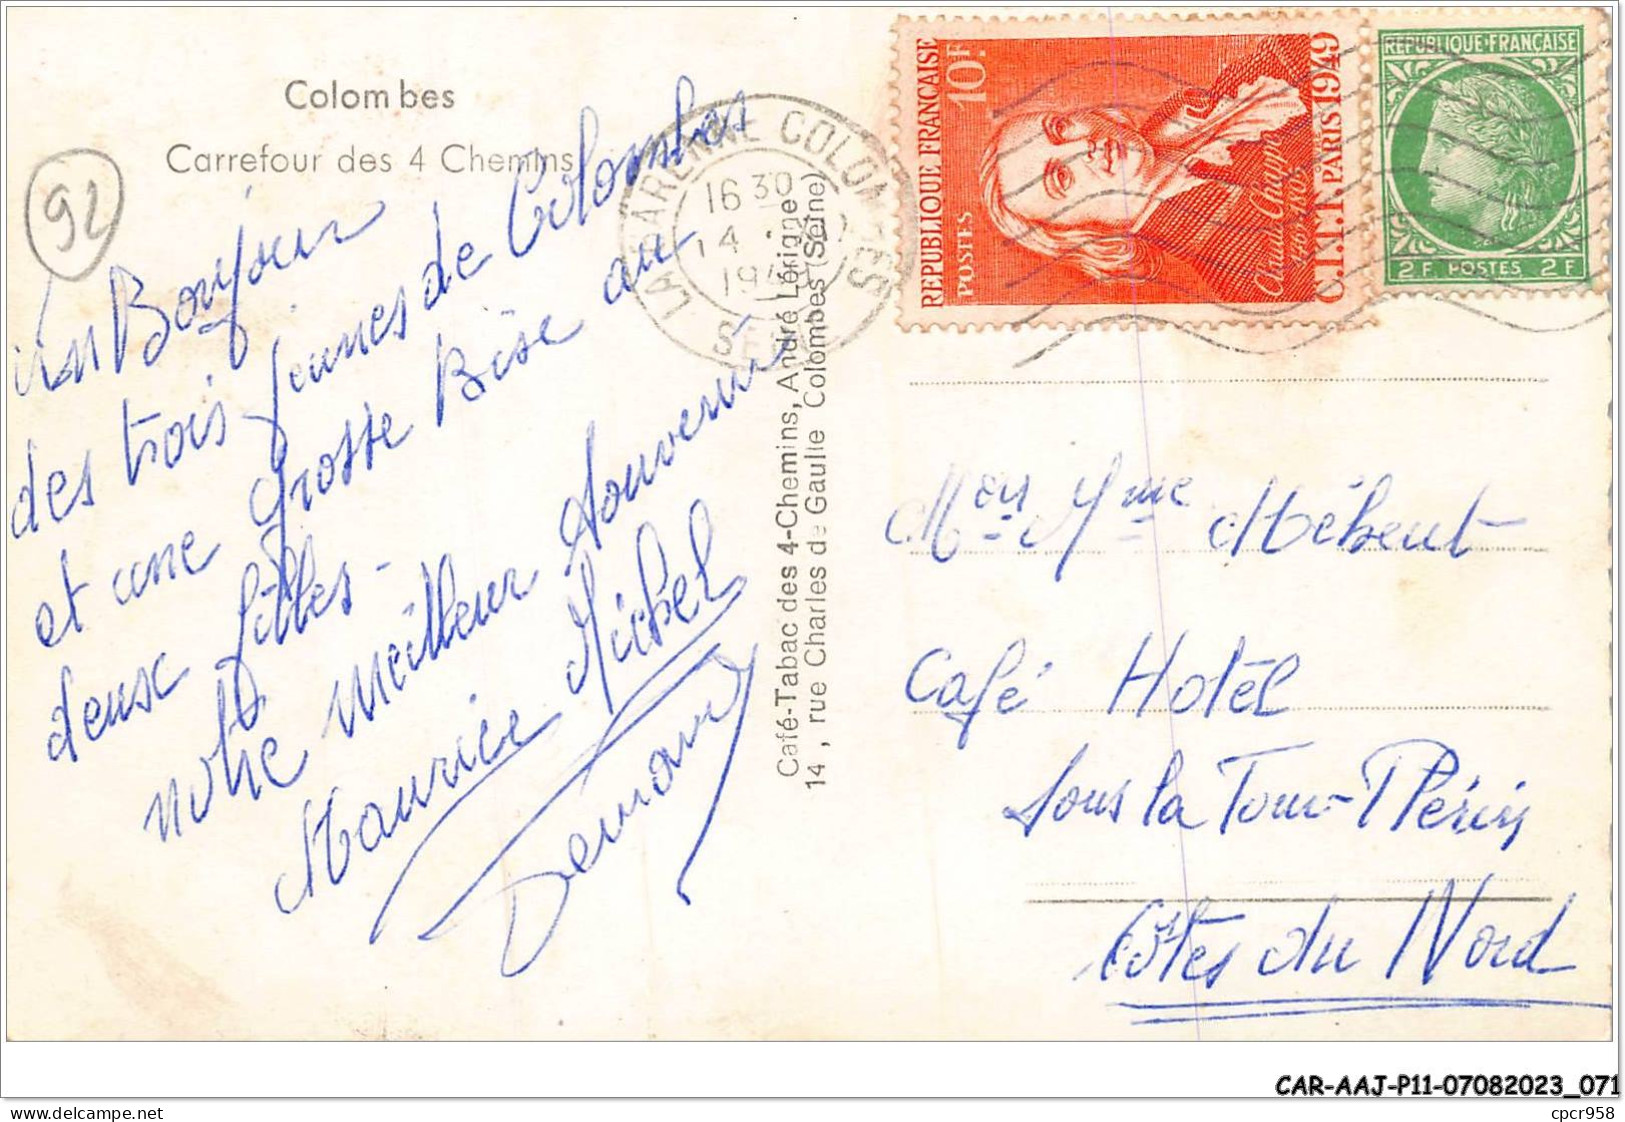 Colombes
Carrefour des 4 Chemins
92
un Bonjour
des trois jeunes de Colombes
et une grosse Bise au
deux filles -
notre meilleur souvenir
Maurice Michel
Café-Tabac des 4-Chemins, André Lérigne
14, rue Charles de Gaulle Colombes (Seine)
LA GARENNE COLOMBES
16 30
14
194
SEINE
REPUBLIQUE FRANÇAISE 10F.
POSTES
Claude Chappe
1763-1805
C.I.T.T. PARIS 1949
REPUBLIQUE·FRANÇAISE
2 F. POSTES 2 F
Mr Mme Hébeut
Café Hotel
Sous la Tour-Plérin
Côtes du Nord
CAR-AAJ-P11-07082023_071
www.delcampe.net
cpcr958